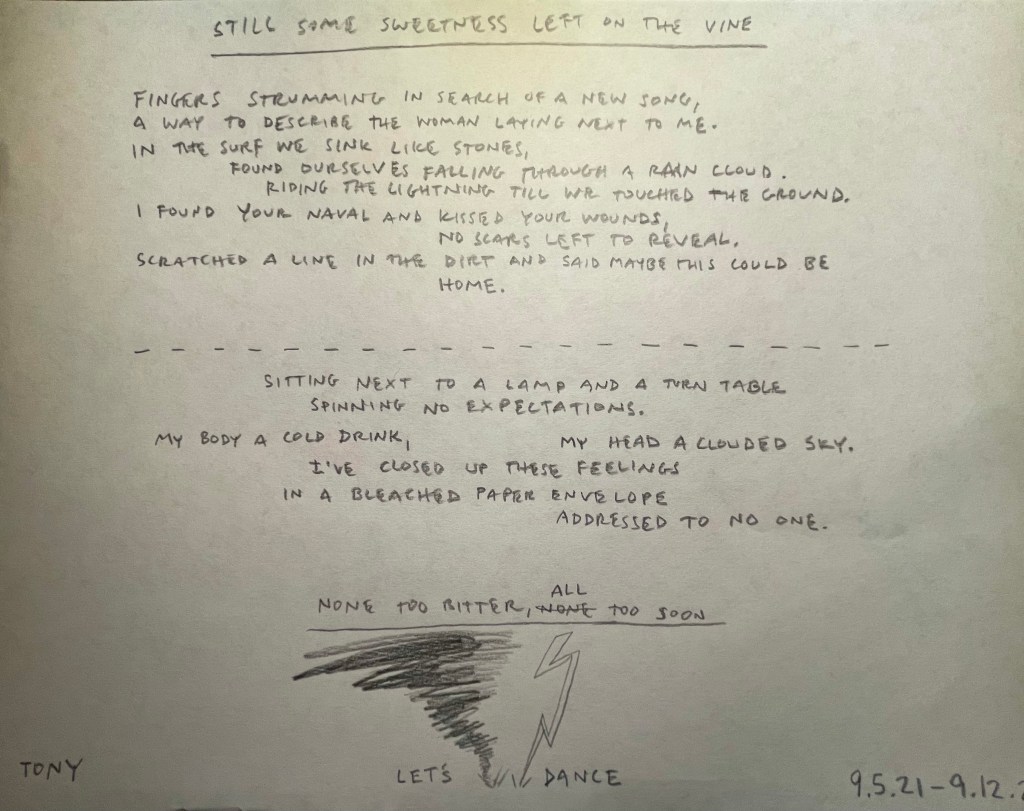 STILL SOME SWEETNESS LEFT ON THE VINE
FINGERS STRUMMING IN SEARCH OF A NEW SONG,
A WAY TO DESCRIBE THE WOMAN LAYING NEXT TO ME.
IN THE SURF WE SINK LIKE STONES,
FOUND OURSELVES FALLING THROUGH A RAIN CLOUD.
RIDING THE LIGHTNING TILL WR TOUCHED THE GROUND.
I FOUND YOUR NAVAL AND KISSED YOUR WOUNDS,
NO SCARS LEFT TO REVEAL.
SCRATCHED A LINE IN THE DIRT AND SAID MAYBE THIS COULD BE
HOME.
SITTING NEXT TO A LAMP AND A TURN TABLE
SPINNING NO EXPECTATIONS.
MY BODY A COLD DRINK, MY HEAD A CLOUDED SKY.
I'VE CLOSED UP THESE FEELINGS
IN A BLEACHED PAPER ENVELOPE
ADDRESSED TO NO ONE.
ALL
NONE TOO BITTER, NONE TOO SOON
LET'S DANCE
TONY
9.5.21-9.12.